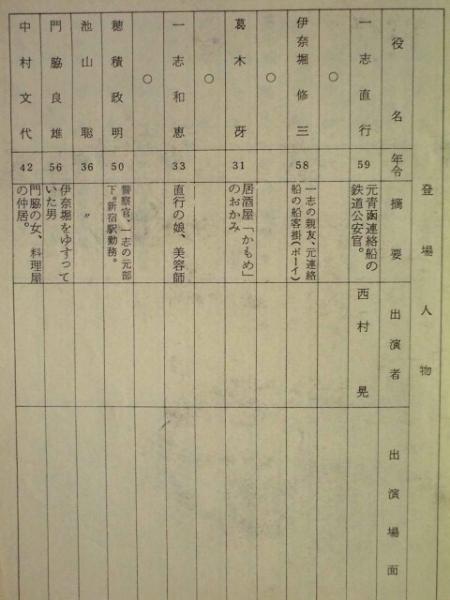 登場人物
役名
年令
摘要
出演者
出演場面
一志直行
59
元青函連絡船の
鉄道公安官。
西村晃
○
伊奈堀修三
58
一志の親友、元連絡
船の船客掛(ボーイ)
○
葛木冴
31
居酒屋「かもめ」
のおかみ
○
一志和恵
33
直行の娘、美容師
○
穂積政明
50
警察官、一志の元部
下。新宿駅勤務。
池山聡
36
〃
門脇良雄
56
伊奈堀をゆすって
いた男
中村文代
42
門脇の女、料理屋
の仲居。